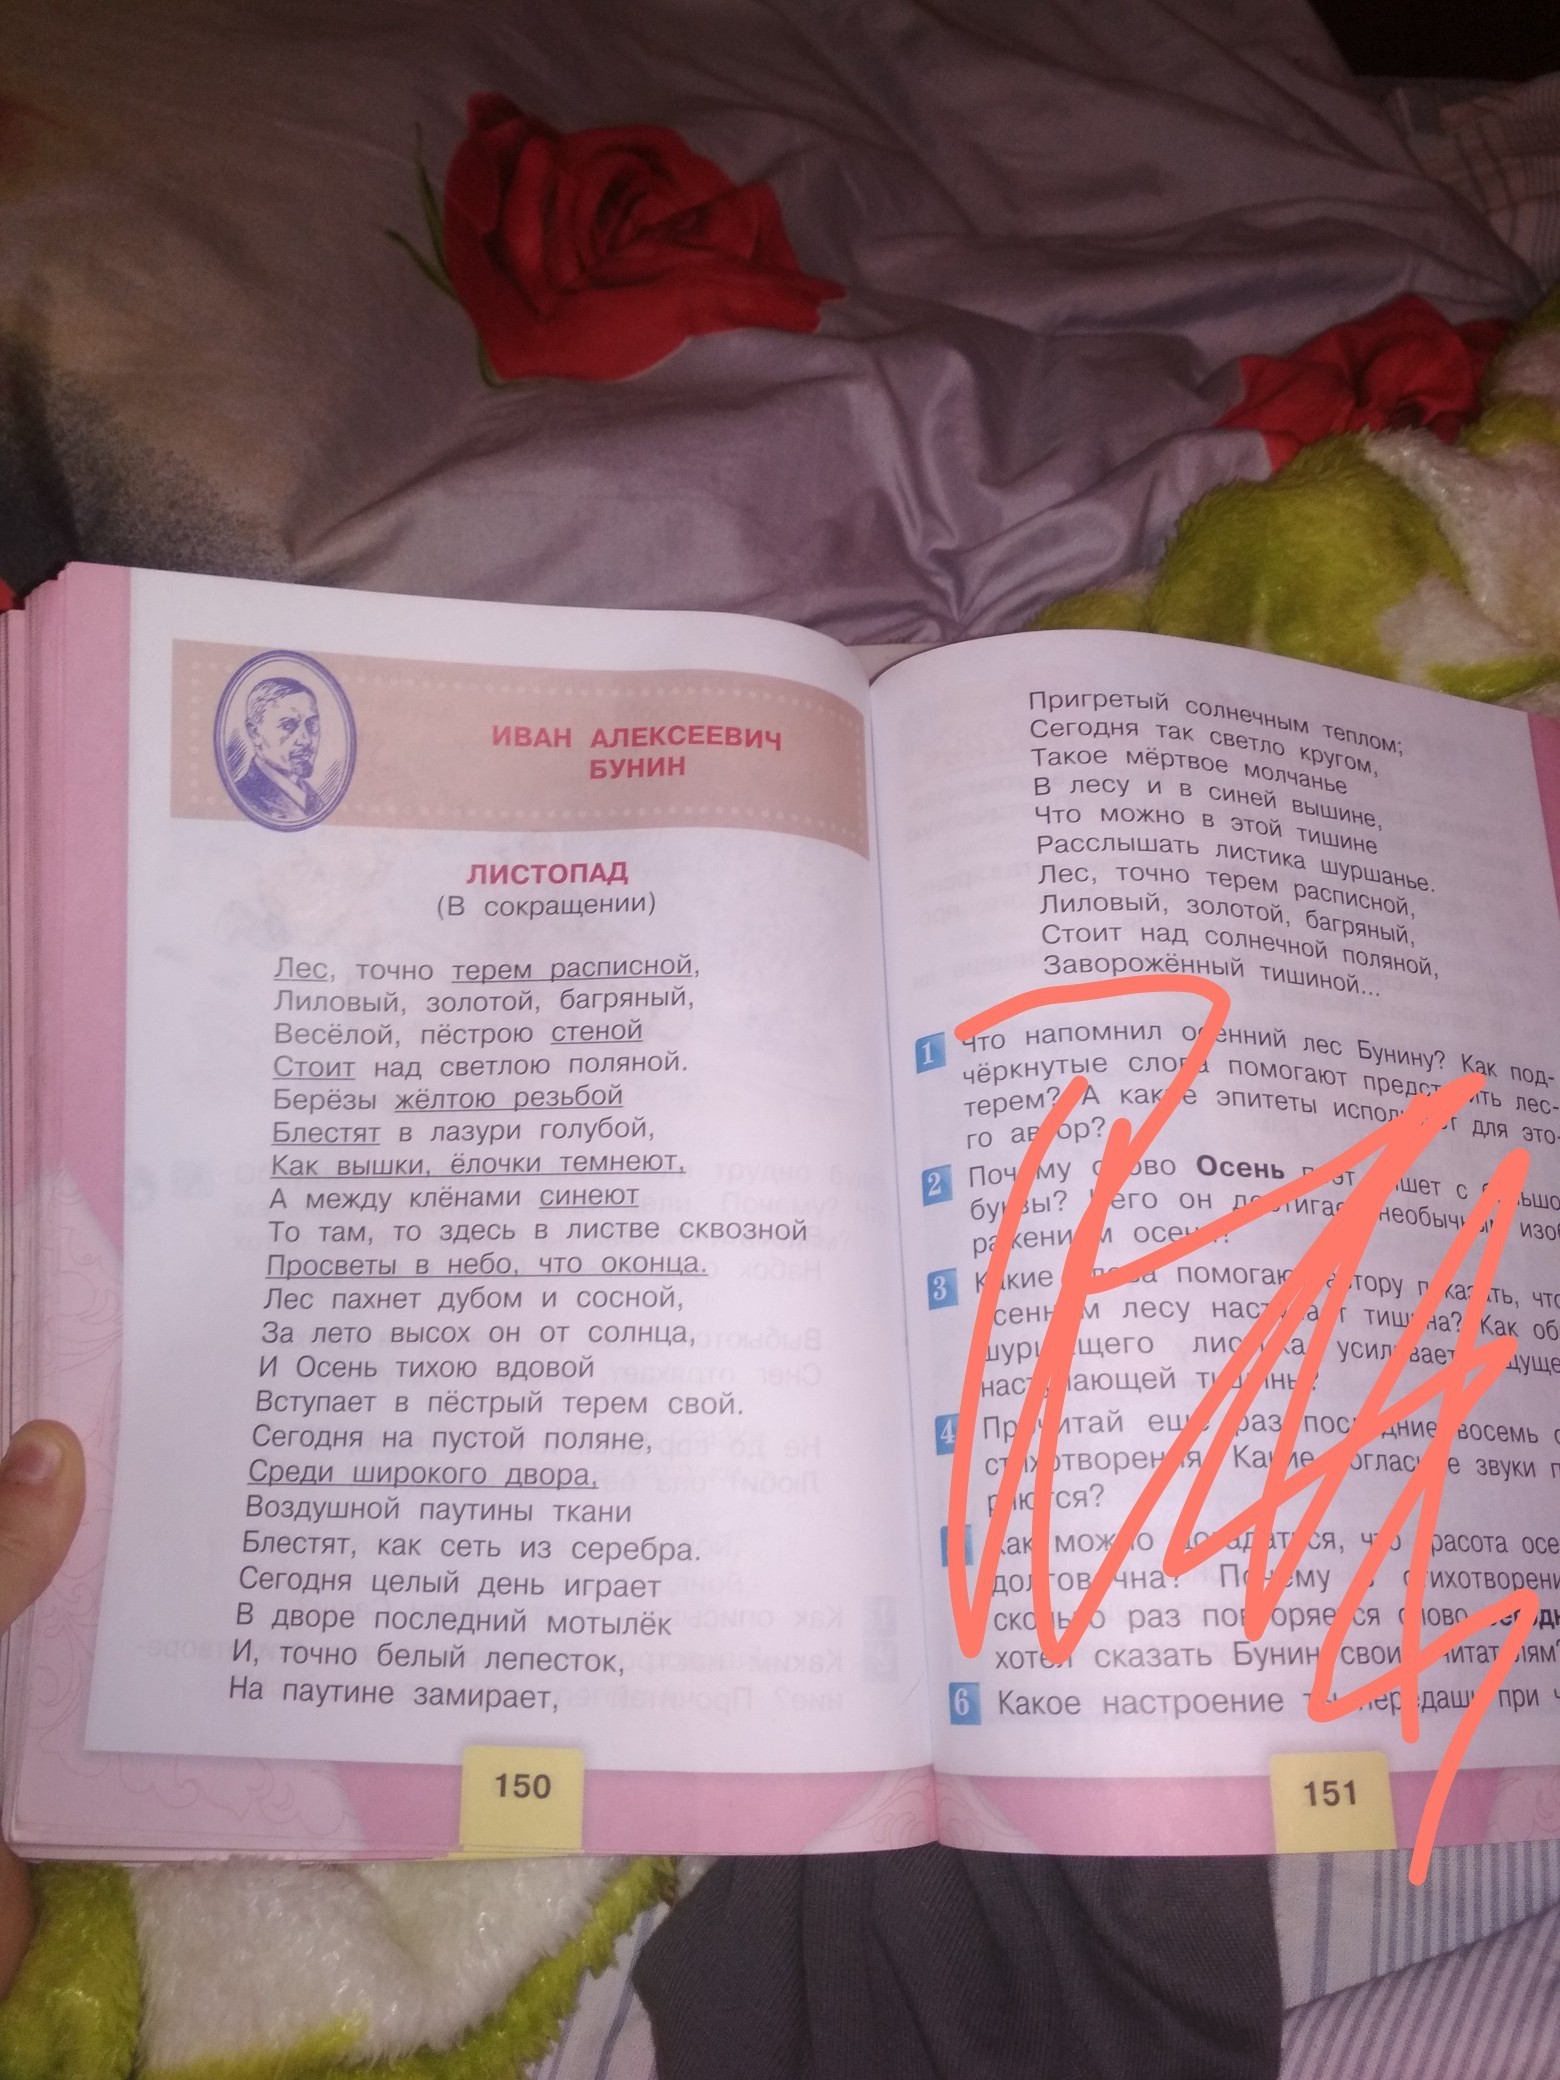 ИВАН АЛЕКСЕЕВИЧ
БУНИН
ЛИСТОПАД
(В сокращении)
Лес, точно терем расписной,
Лиловый, золотой, багряный,
Весёлой, пёстрою стеной
Стоит над светлою поляной.
Берёзы жёлтою резьбой
Блестят в лазури голубой,
Как вышки, ёлочки темнеют,
А между клёнами синеют
То там, то здесь в листве сквозной
Просветы в небо, что оконца.
Лес пахнет дубом и сосной,
За лето высох он от солнца,
И Осень тихою вдовой
Вступает в пёстрый терем свой.
Сегодня на пустой поляне,
Среди широкого двора,
Воздушной паутины ткани
Блестят, как сеть из серебра.
Сегодня целый день играет
В дворе последний мотылёк
И, точно белый лепесток,
На паутине замирает,
150
Пригретый солнечным теплом;
Сегодня так светло кругом,
Такое мёртвое молчанье
В лесу и в синей вышине,
Что можно в этой тишине
Расслышать листика шуршанье.
Лес, точно терем расписной,
Лиловый, золотой, багряный,
Стоит над солнечной поляной,
Заворожённый тишиной...
1 Что напомнил осенний лес Бунину? Как под-
чёркнутые слова помогают представить лес-
терем? А какие эпитеты использует для это-
го автор?
2 Почему слово Осень поэт пишет с
буквы? Чего он достигает необычным изоб
ражением осени?
3 Какие слова помогают автору показать, что
осеннем лесу наступает тишина? Как об
шуршащего листика усиливает
наступающей тишины?
4 Прочитай ещё раз последние восемь
стихотворения. Какие согласные звуки
ряются?
Как можно догадаться, что красота осе
долговечна? Почему в стихотворени
сколько раз повторяется слово
хотел сказать Бунин своим читателям?
6 Какое настроение ты передашь при
151